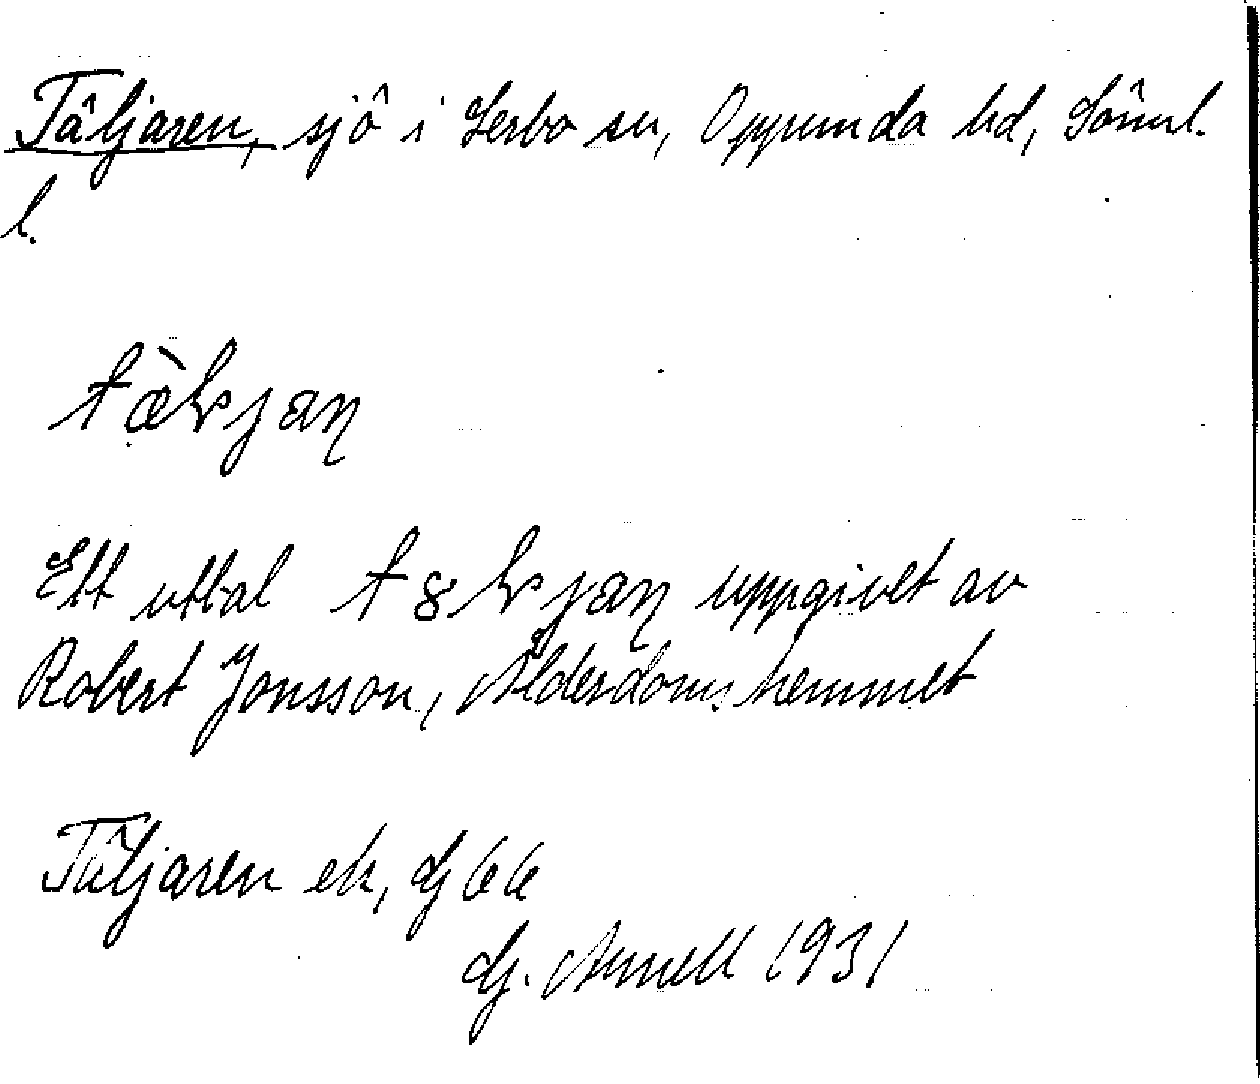 Täljaren, sjö i Lerbo sn, Oppunda hd, Söml.
l.
Ett uttal uppgivet av
Robert Jonsson, Ålderdomshemmet
Täljaren ek, dj 66
dj. Arnell 1931